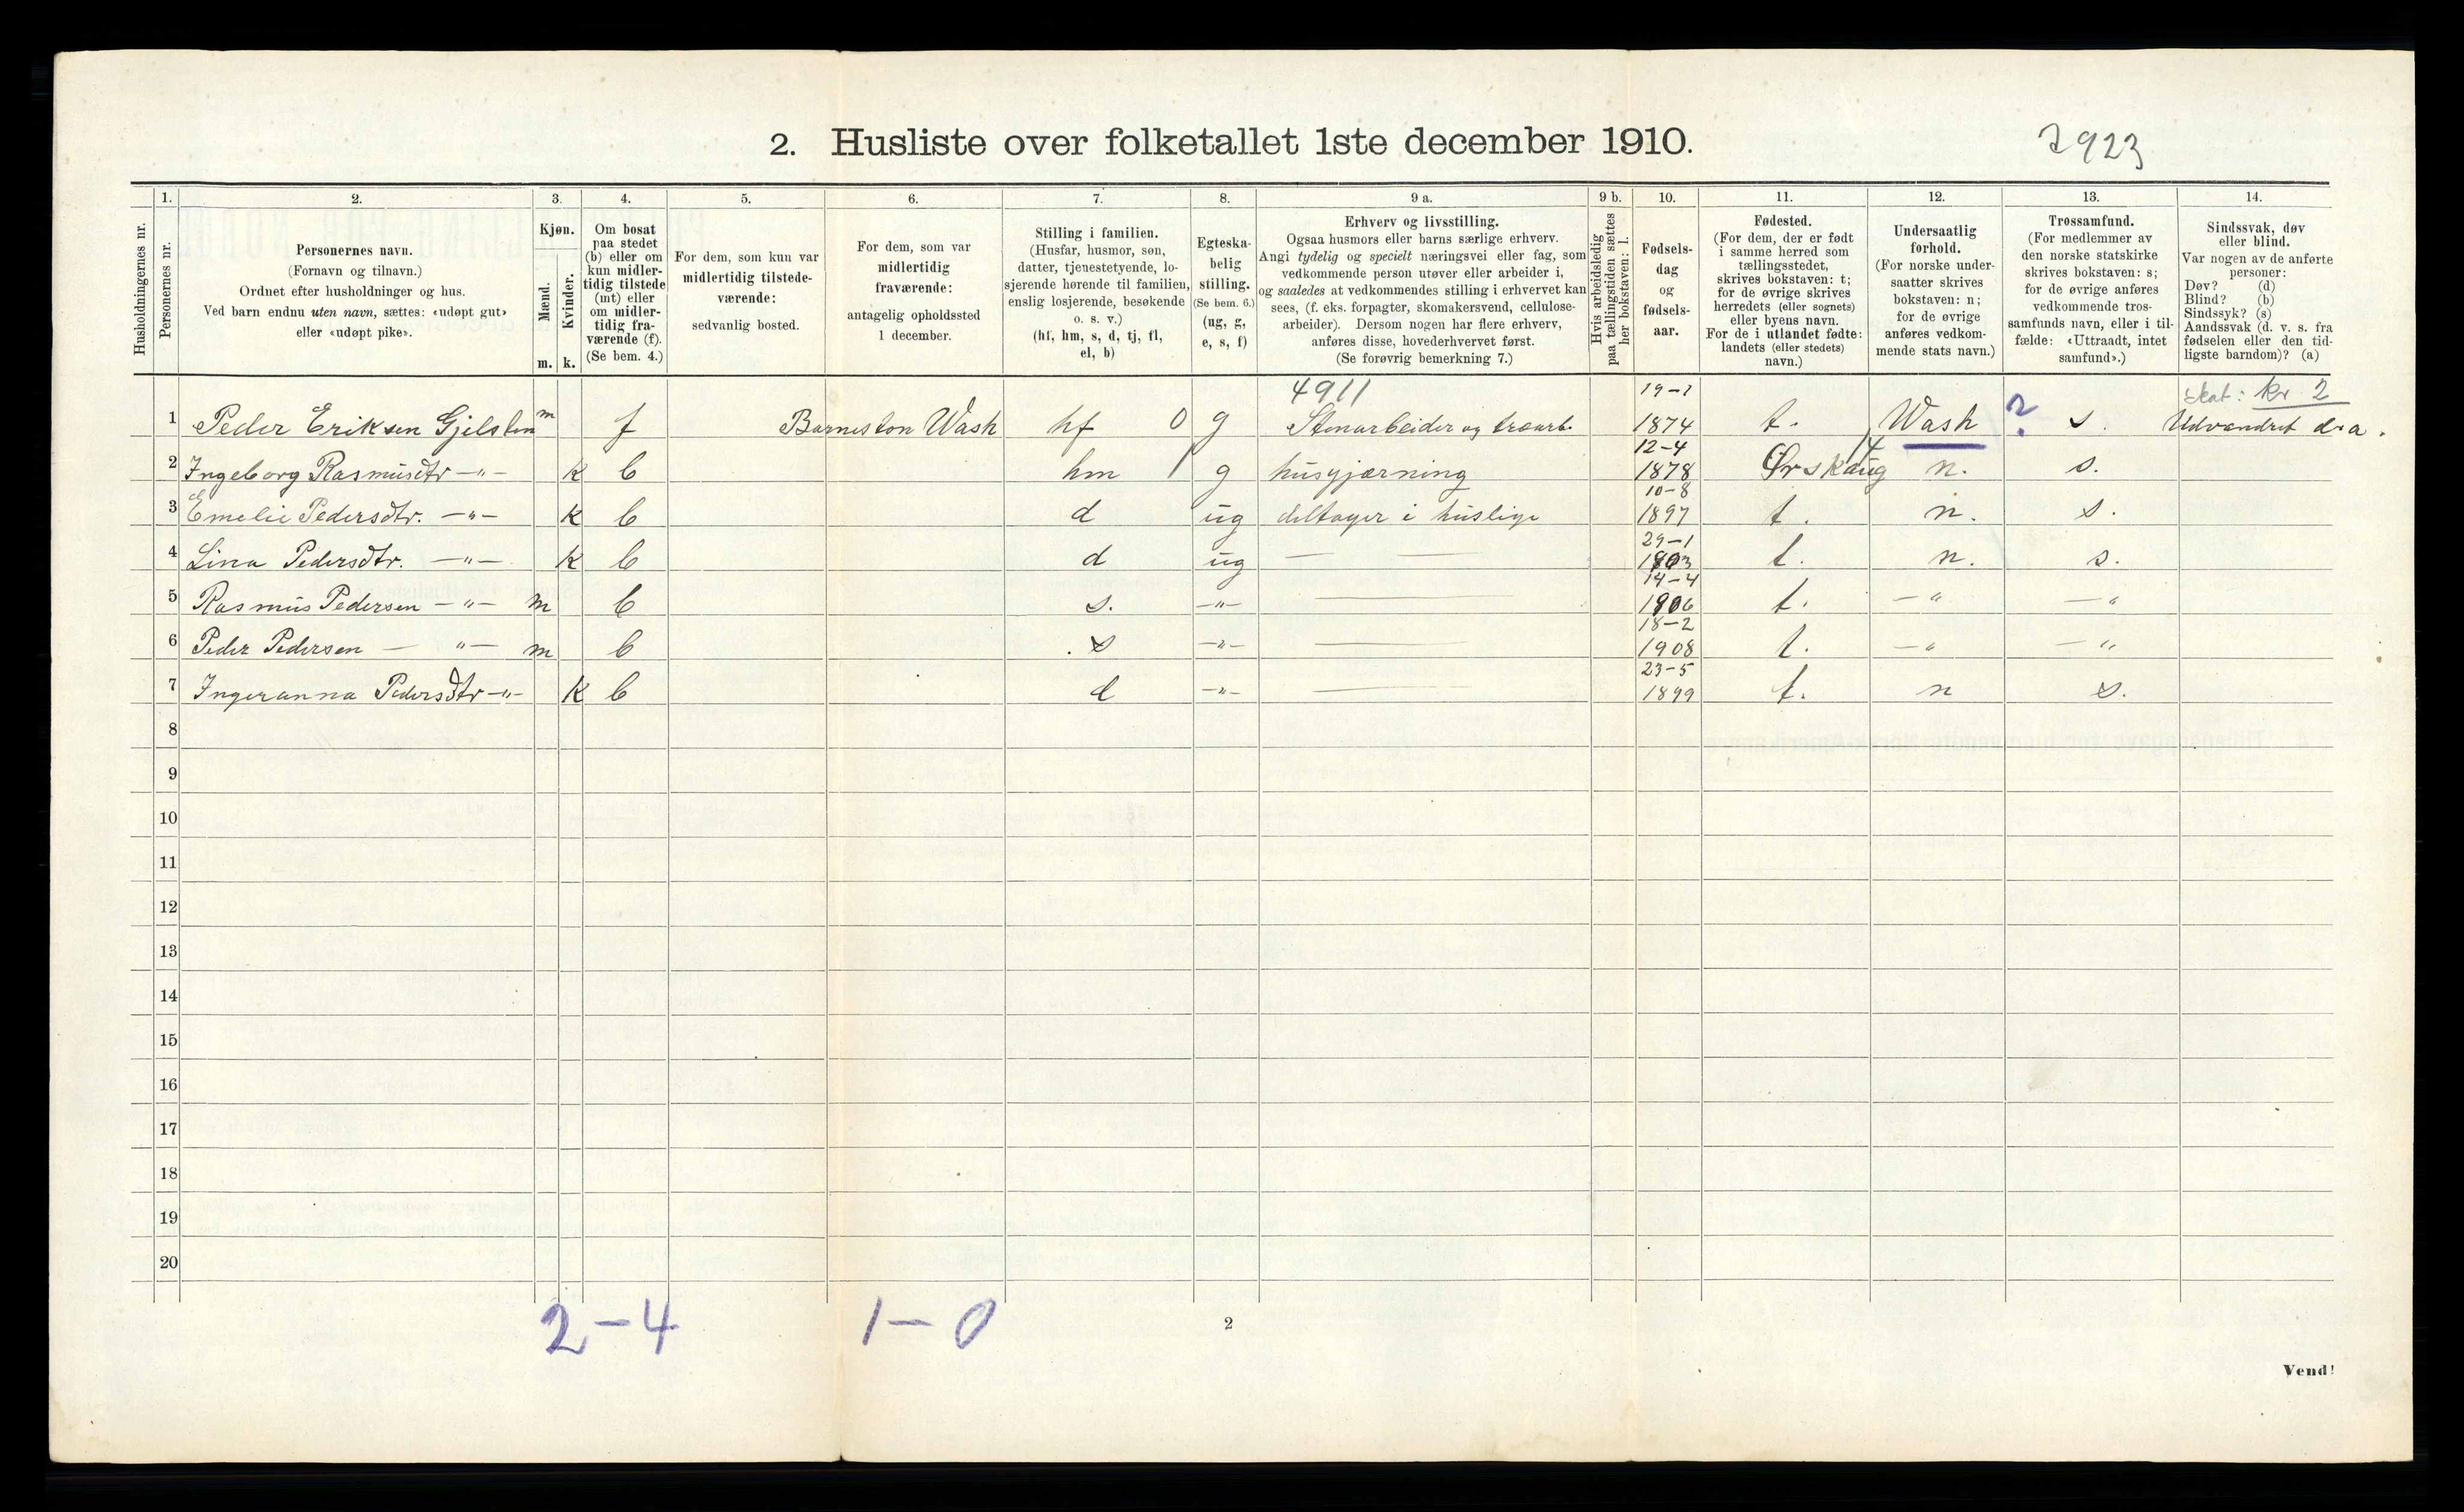 2. Husliste over folketallet 1ste december 1910.
2923
1. 2. 3. 4. 5. 6. 7. 8. 9 a. 9 b. 10. 11. 12. 13. 14.
Husholdningernes nr.
Personernes nr.
Personernes navn.
(Fornavn og tilnavn.)
Ordnet efter husholdninger og hus.
Ved barn endnu uten navn, sættes: «udøpt gut»
eller «udøpt pike».
Kjøn.
Mænd.
m.
Kvinder.
k.
Om bosat
paa stedet
(b) eller om
kun midler-
tidig tilstede
(mt) eller
om midler-
tidig fra-
værende (f).
(Se bem. 4.)
For dem, som kun var
midlertidig tilstede-
værende:
sedvanlig bosted.
For dem, som var
midlertidig
fraværende:
antagelig opholdssted
1 december.
Stilling i familien.
(Husfar, husmor, søn,
datter, tjenestetyende, lo-
sjerende hørende til familien,
enslig losjerende, besøkende
o. s. v.)
(hf, hm, s, d, tj, fl,
el, b)
Egteska-
belig
stilling.
(Se bem. 6.)
(ug, g,
e, s, f)
Erhverv og livsstilling.
Ogsaa husmors eller barns særlige erhverv.
Angi tydelig og specielt næringsvei eller fag, som
vedkommende person utøver eller arbeider i,
og saaledes at vedkommendes stilling i erhvervet kan
sees, (f. eks. forpagter, skomakersvend, cellulose-
arbeider). Dersom nogen har flere erhverv,
anføres disse, hovederhvervet først.
(Se forøvrig bemerkning 7.)
Hvis arbeidsledig
paa tællingstiden sættes
her bokstaven: l.
Fødsels-
dag
og
fødsels-
aar.
Fødested.
(For dem, der er født
i samme herred som
tællingsstedet,
skrives bokstaven: t;
for de øvrige skrives
herredets (eller sognets)
eller byens navn.
For de i utlandet fødte:
landets (eller stedets)
navn.)
Undersaatlig
forhold.
(For norske under-
saatter skrives
bokstaven: n;
for de øvrige
anføres vedkom-
mende stats navn.)
Trossamfund.
(For medlemmer av
den norske statskirke
skrives bokstaven: s;
for de øvrige anføres
vedkommende tros-
samfunds navn, eller i til-
fælde: «Uttraadt, intet
samfund».)
Sindssvak, døv
eller blind.
Var nogen av de anførte
personer:
Døv? (d)
Blind? (b)
Sindssyk? (s)
Aandssvak (d. v. s. fra
fødselen eller den tid-
ligste barndom)? (a)
4911 19-1 skat: kr 2
1 Peder Eriksen Gjelsten m f Barneston Wash hf 0 g Stenarbeider og træarb. 1874 t. Wash ? s. Udvandret
12-4 14
2 Ingeborg Rasmusdtr -"- k b hm 1 g husgjærning 1878 Ørskaug n. s.
10-8
3 Emelie Pedersdtr. -"- k b d ug deltager i huslige 1897 t. n. s.
29-1
4 Lina Pedersdtr. -"- k b d ug — — 1903 t. n. s.
14-4
5 Rasmus Pedersen -"- m b s. -"- — 1906 t. -" -"
18-2
6 Peder Pedersen - "- m b s -"- — 1908 t. -" -"
23-5
7 Ingeranna Pedersdtr -"- k b d -"- — 1899 t. n s.
8
9
10
11
12
13
14
15
16
17
18
19
20
2-4 1-0
2
Vend!